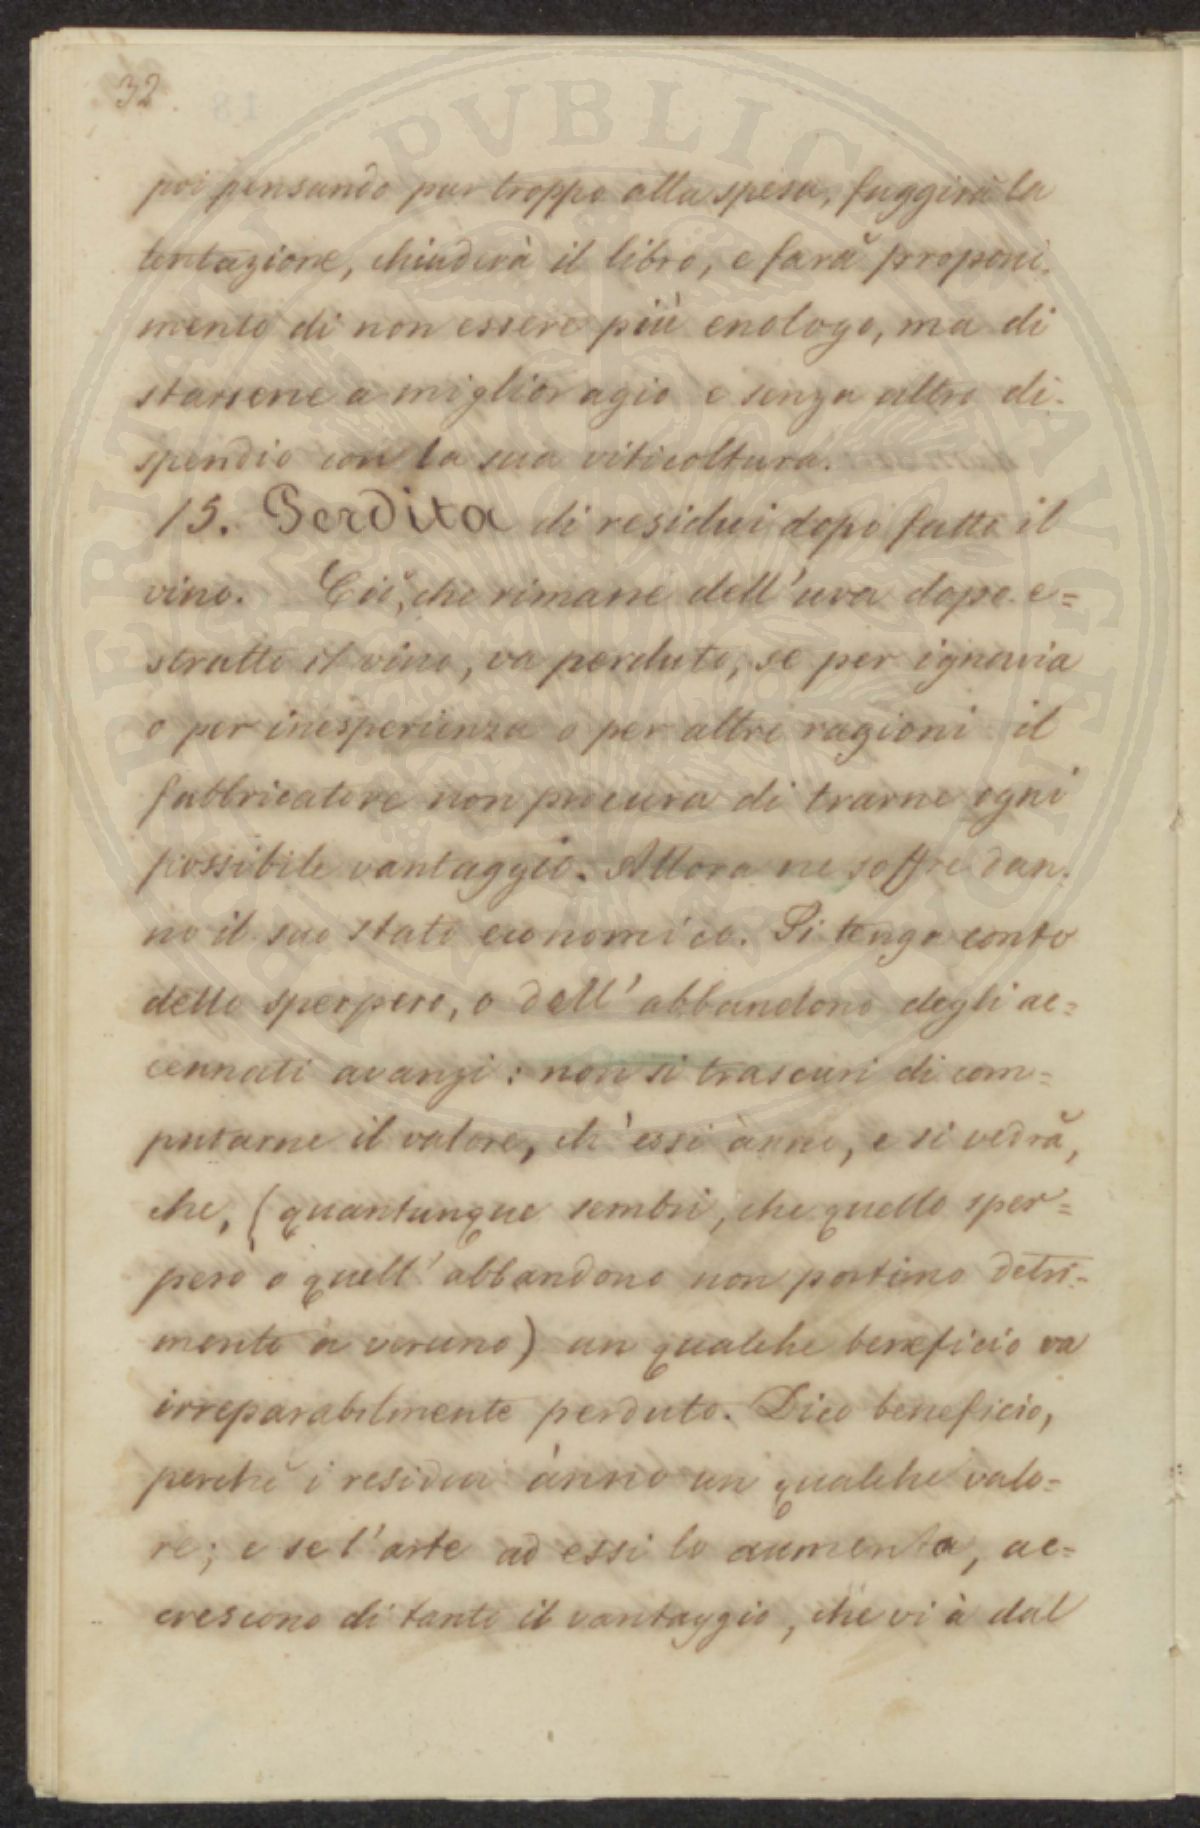 32
poi pensando pur troppo alla spesa, fuggirà la
tentazione, chiuderà il libro, e farà proponi-
mento di non essere più enologo, ma di
starsene a miglior agio e senza altro di-
spendio con la sua viticoltura.
15. Perdita di residui dopo fatto il
vino. Ciò, che rimane dell'uva dopo e=
stratto il vino, va perduto, se per ignavia
o per inesperienza o per altre ragioni il
fabbricatore non procura di trarne ogni
possibile vantaggio. Allora ne soffre dan-
no il suo stato economico. Si tenga conto
dello sperpero, o dell'abbandono degli ac=
cennati avanzi: non si trascuri di com=
putarne il valore, ch'essi ànno, e si vedrà,
che, (quantunque sembri, che quello sper=
pero o quell'abbandono non portino detri=
mento a veruno) un qualche beneficio va
irreparabilmente perduto. Dico beneficio,
perchè i residui ànno un qualche valo=
re; e se l'arte ad essi lo aumenta, ac=
crescono di tanto il vantaggio, che vi à dal